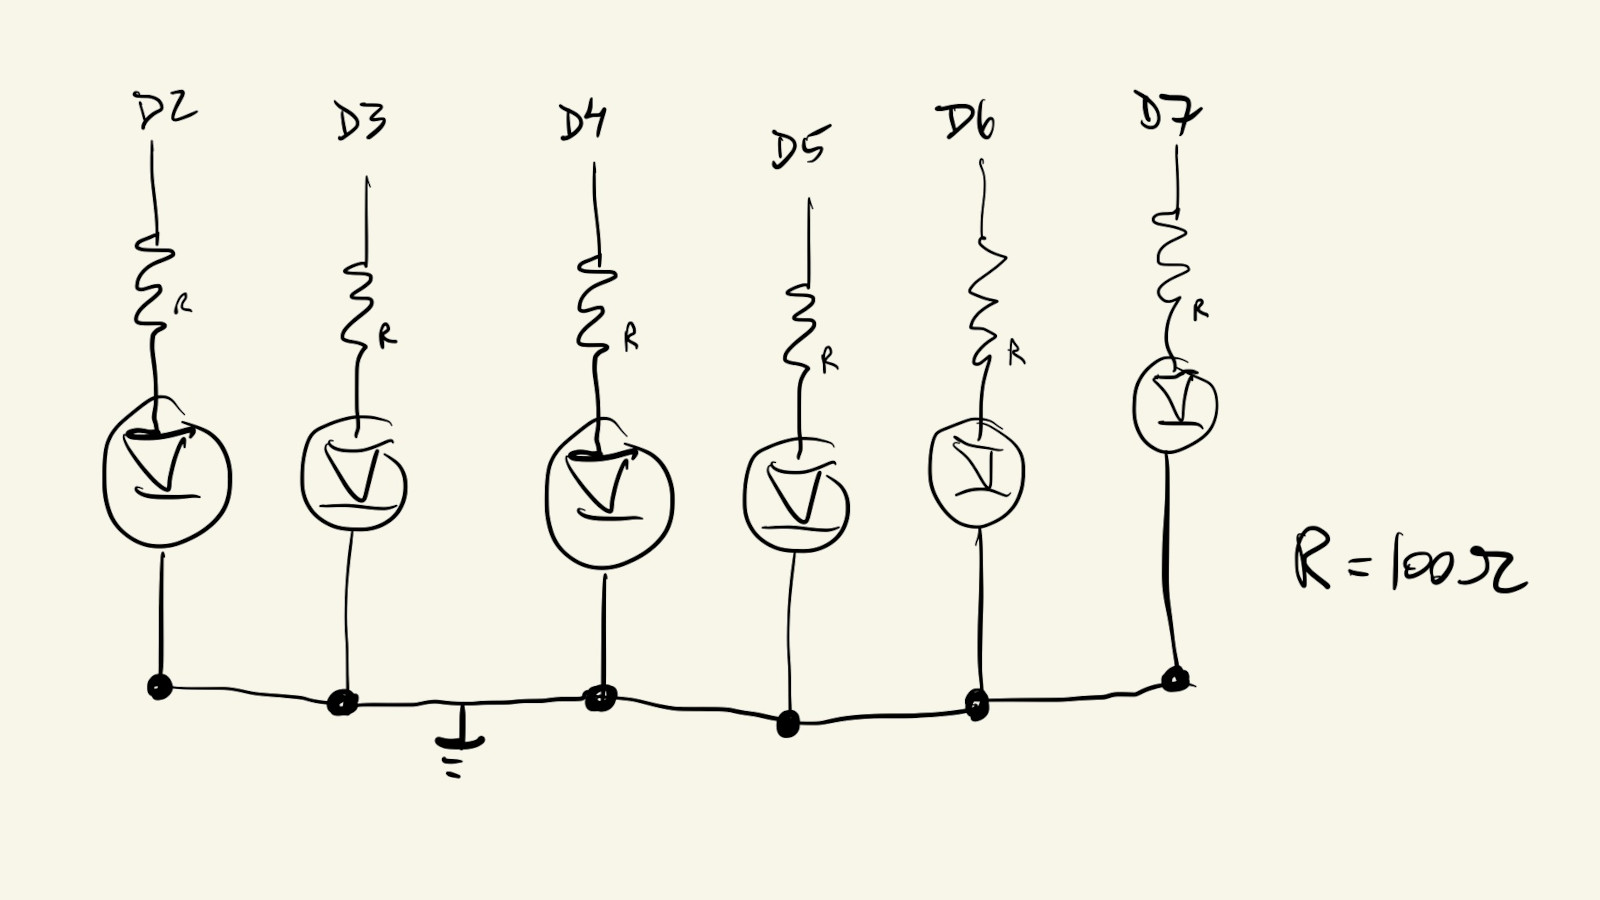 D2 D3 D4 D5 D6 D7
R R R R R R
R = 100Ω